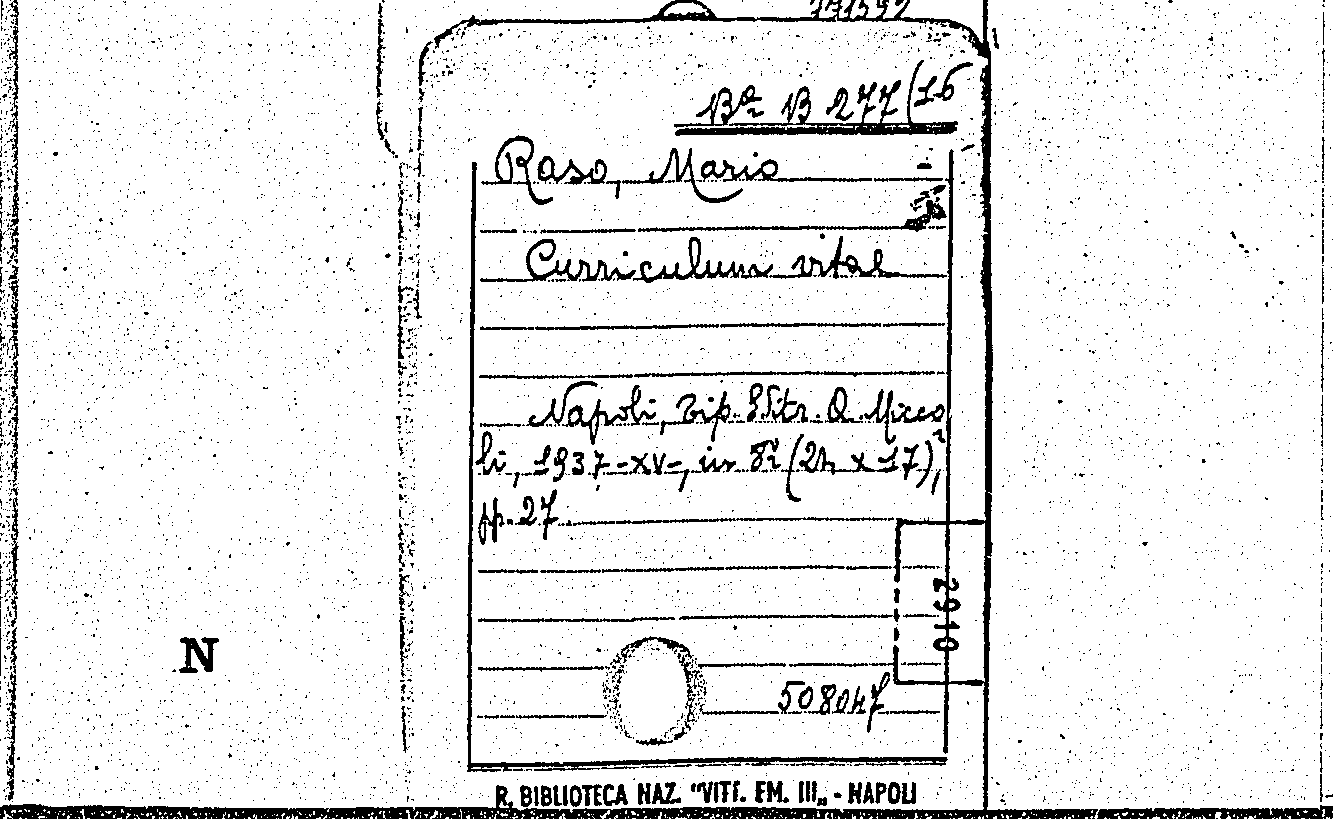 Bª B 277(16
Raso, Mario
Curriculum vitae
Napoli, Tip. Editr. Q. Miceo
li, 1937-XV-, in 8º (24 x 17),
pp. 27.
2910
N
508047
R. BIBLIOTECA NAZ. "VITT. EM. III„ - NAPOLI